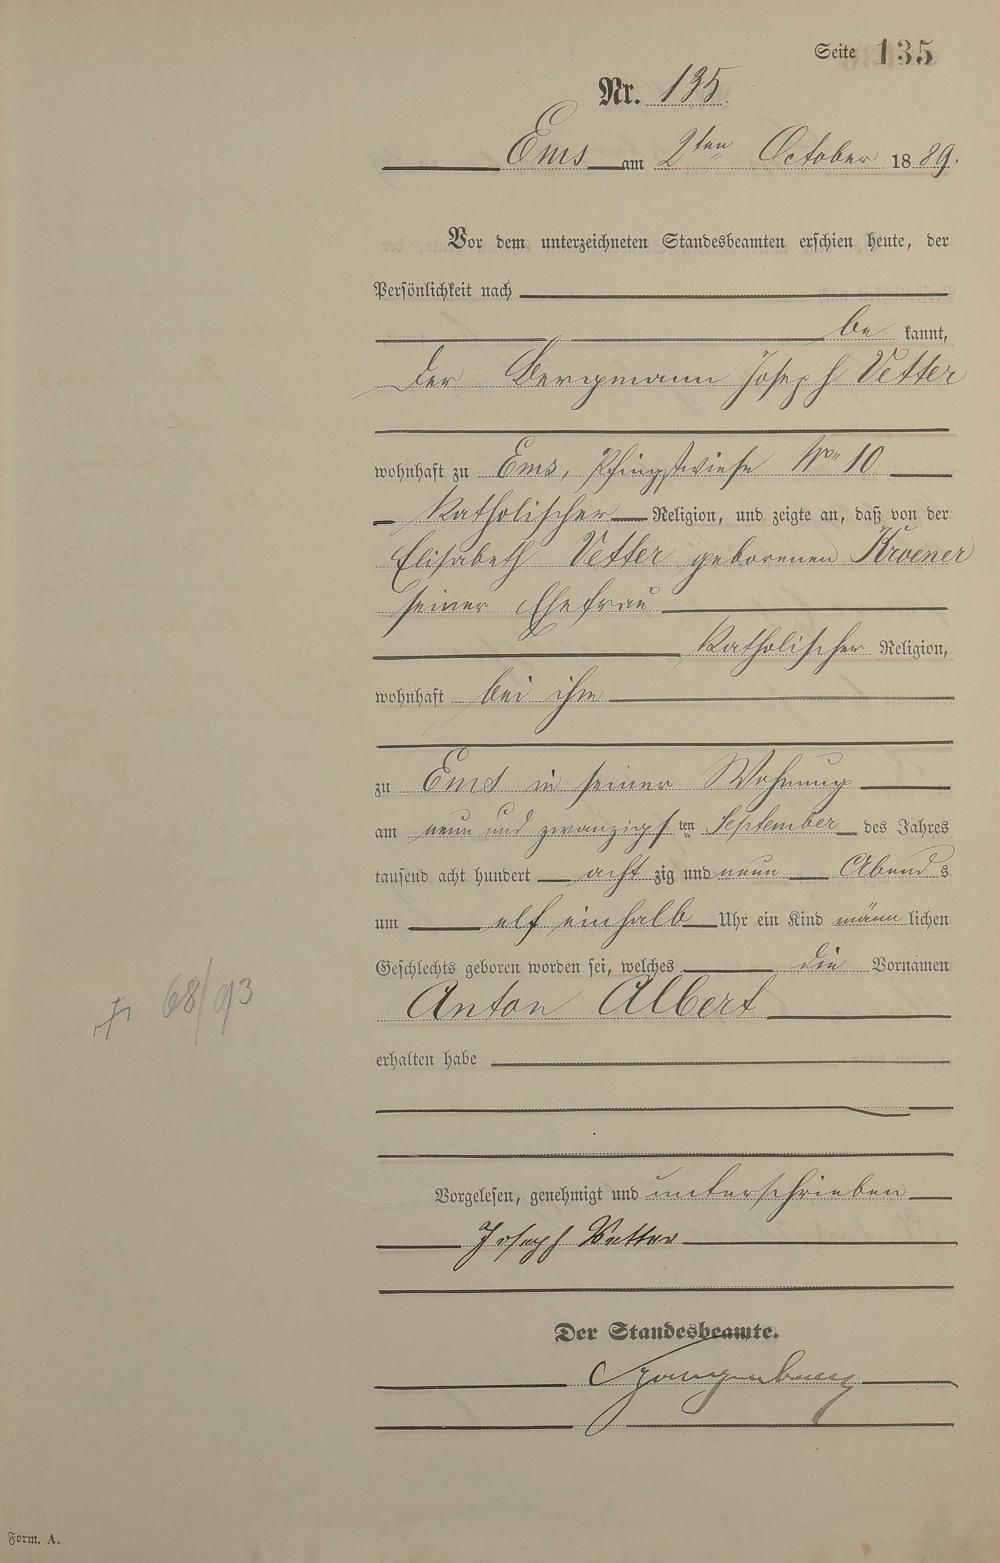 Seite 135
Nr. 135.
Ems am 2ten October 1889.
Vor dem unterzeichneten Standesbeamten erschien heute, der
Persönlichkeit nach
be kannt,
der Bergmann Joseph Vetter
wohnhaft zu Ems, Pfingstwiese No 10
katholischer Religion, und zeigte an, daß von der
Elisabeth Vetter geborenen Kroener
seiner Ehefrau
katholischer Religion,
wohnhaft bei ihm
zu Ems in seiner Wohnung
am neun und zwanzigsten September des Jahres
tausend acht hundert acht zig und neun Abends
um elf einhalb Uhr ein Kind männlichen
Geschlechts geboren worden sei, welches die Vornamen
Anton Albert
erhalten habe
† 68/93
Vorgelesen, genehmigt und unterschrieben
Joseph Vetter
Der Standesbeamte.
Form. A.